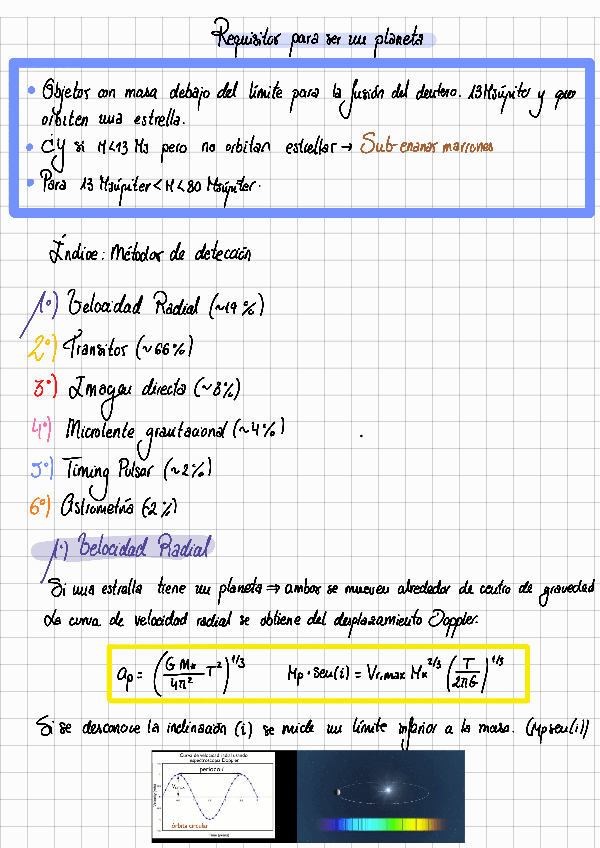 Requisitos para ser un planeta
• Objetos con masa debajo del límite para la fusión del deuterio. 13 MJúpiter y que
orbiten una estrella.
• ¿y si M<13 MJ pero no orbitan estrellas → Sub-enanas marrones
• Para 13 MJúpiter < M < 80 MJúpiter.
Índice: Métodos de detección
1º) Velocidad Radial (~19%)
2º) Transitos (~66%)
3º) Imagen directa (~8%)
4º) Microlente gravitacional (~4%)
5º) Timing Pulsar (~2%)
6º) Astrometría (2%)
1º) Velocidad Radial
Si una estrella tiene un planeta ⇒ ambos se mueven alrededor de centro de gravedad
La curva de velocidad radial se obtiene del desplazamiento Doppler.
ap = (G M* / 4π² T²)^1/3   Mp · sen(i) = Vr,max M*^2/3 (T / 2πG)^1/3
Si se desconoce la inclinación (i) se mide un límite inferior a la masa. (Mp sen(i))
Curva de velocidad radial usando
espectroscopia Doppler
periodo
órbita circular